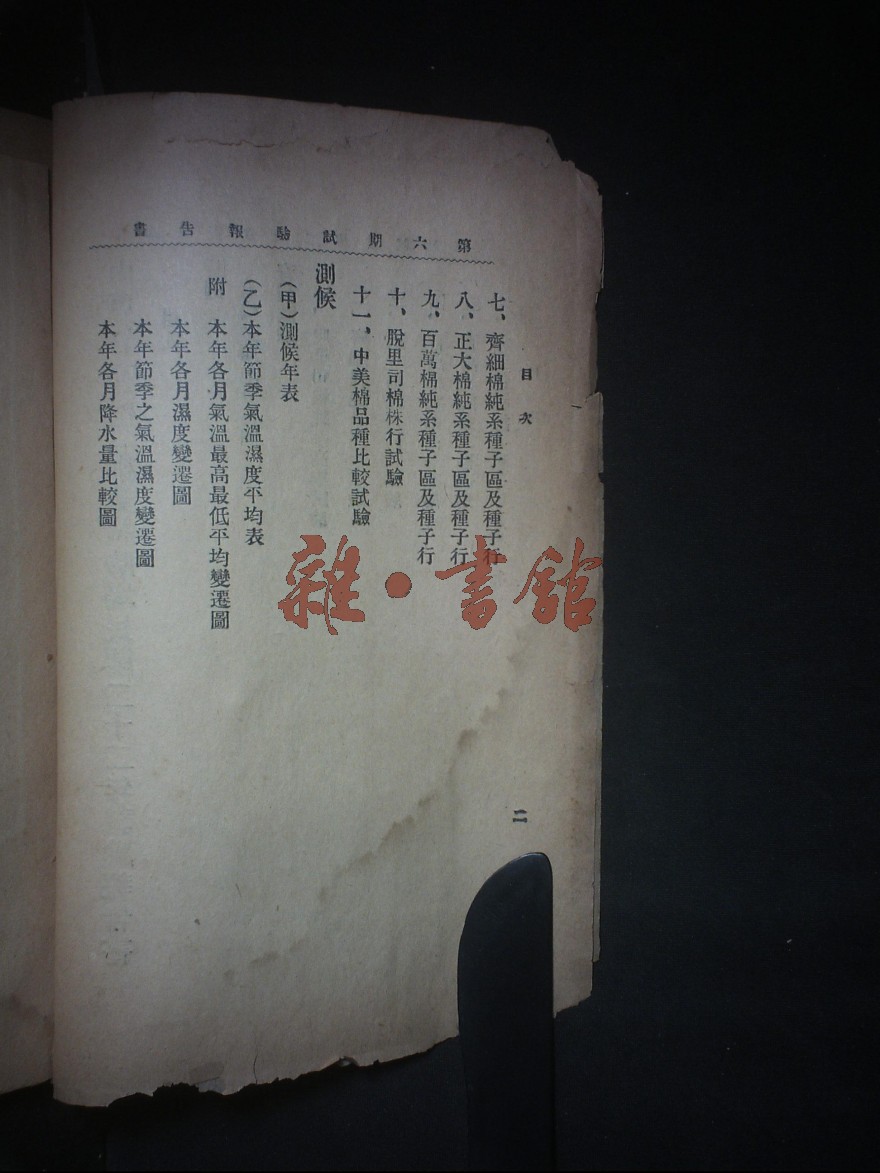 第六期試驗報告書
目次
二
七、齊細棉純系種子區及種子行
八、正大棉純系種子區及種子行
九、百萬棉純系種子區及種子行
十、脫里司棉株行試驗
十一、中美棉品種比較試驗
測候
(甲)測候年表
(乙)本年節季氣溫濕度平均表
附 本年各月氣溫最高最低平均變遷圖
本年各月濕度變遷圖
本年節季之氣溫濕度變遷圖
本年各月降水量比較圖
雜·書館